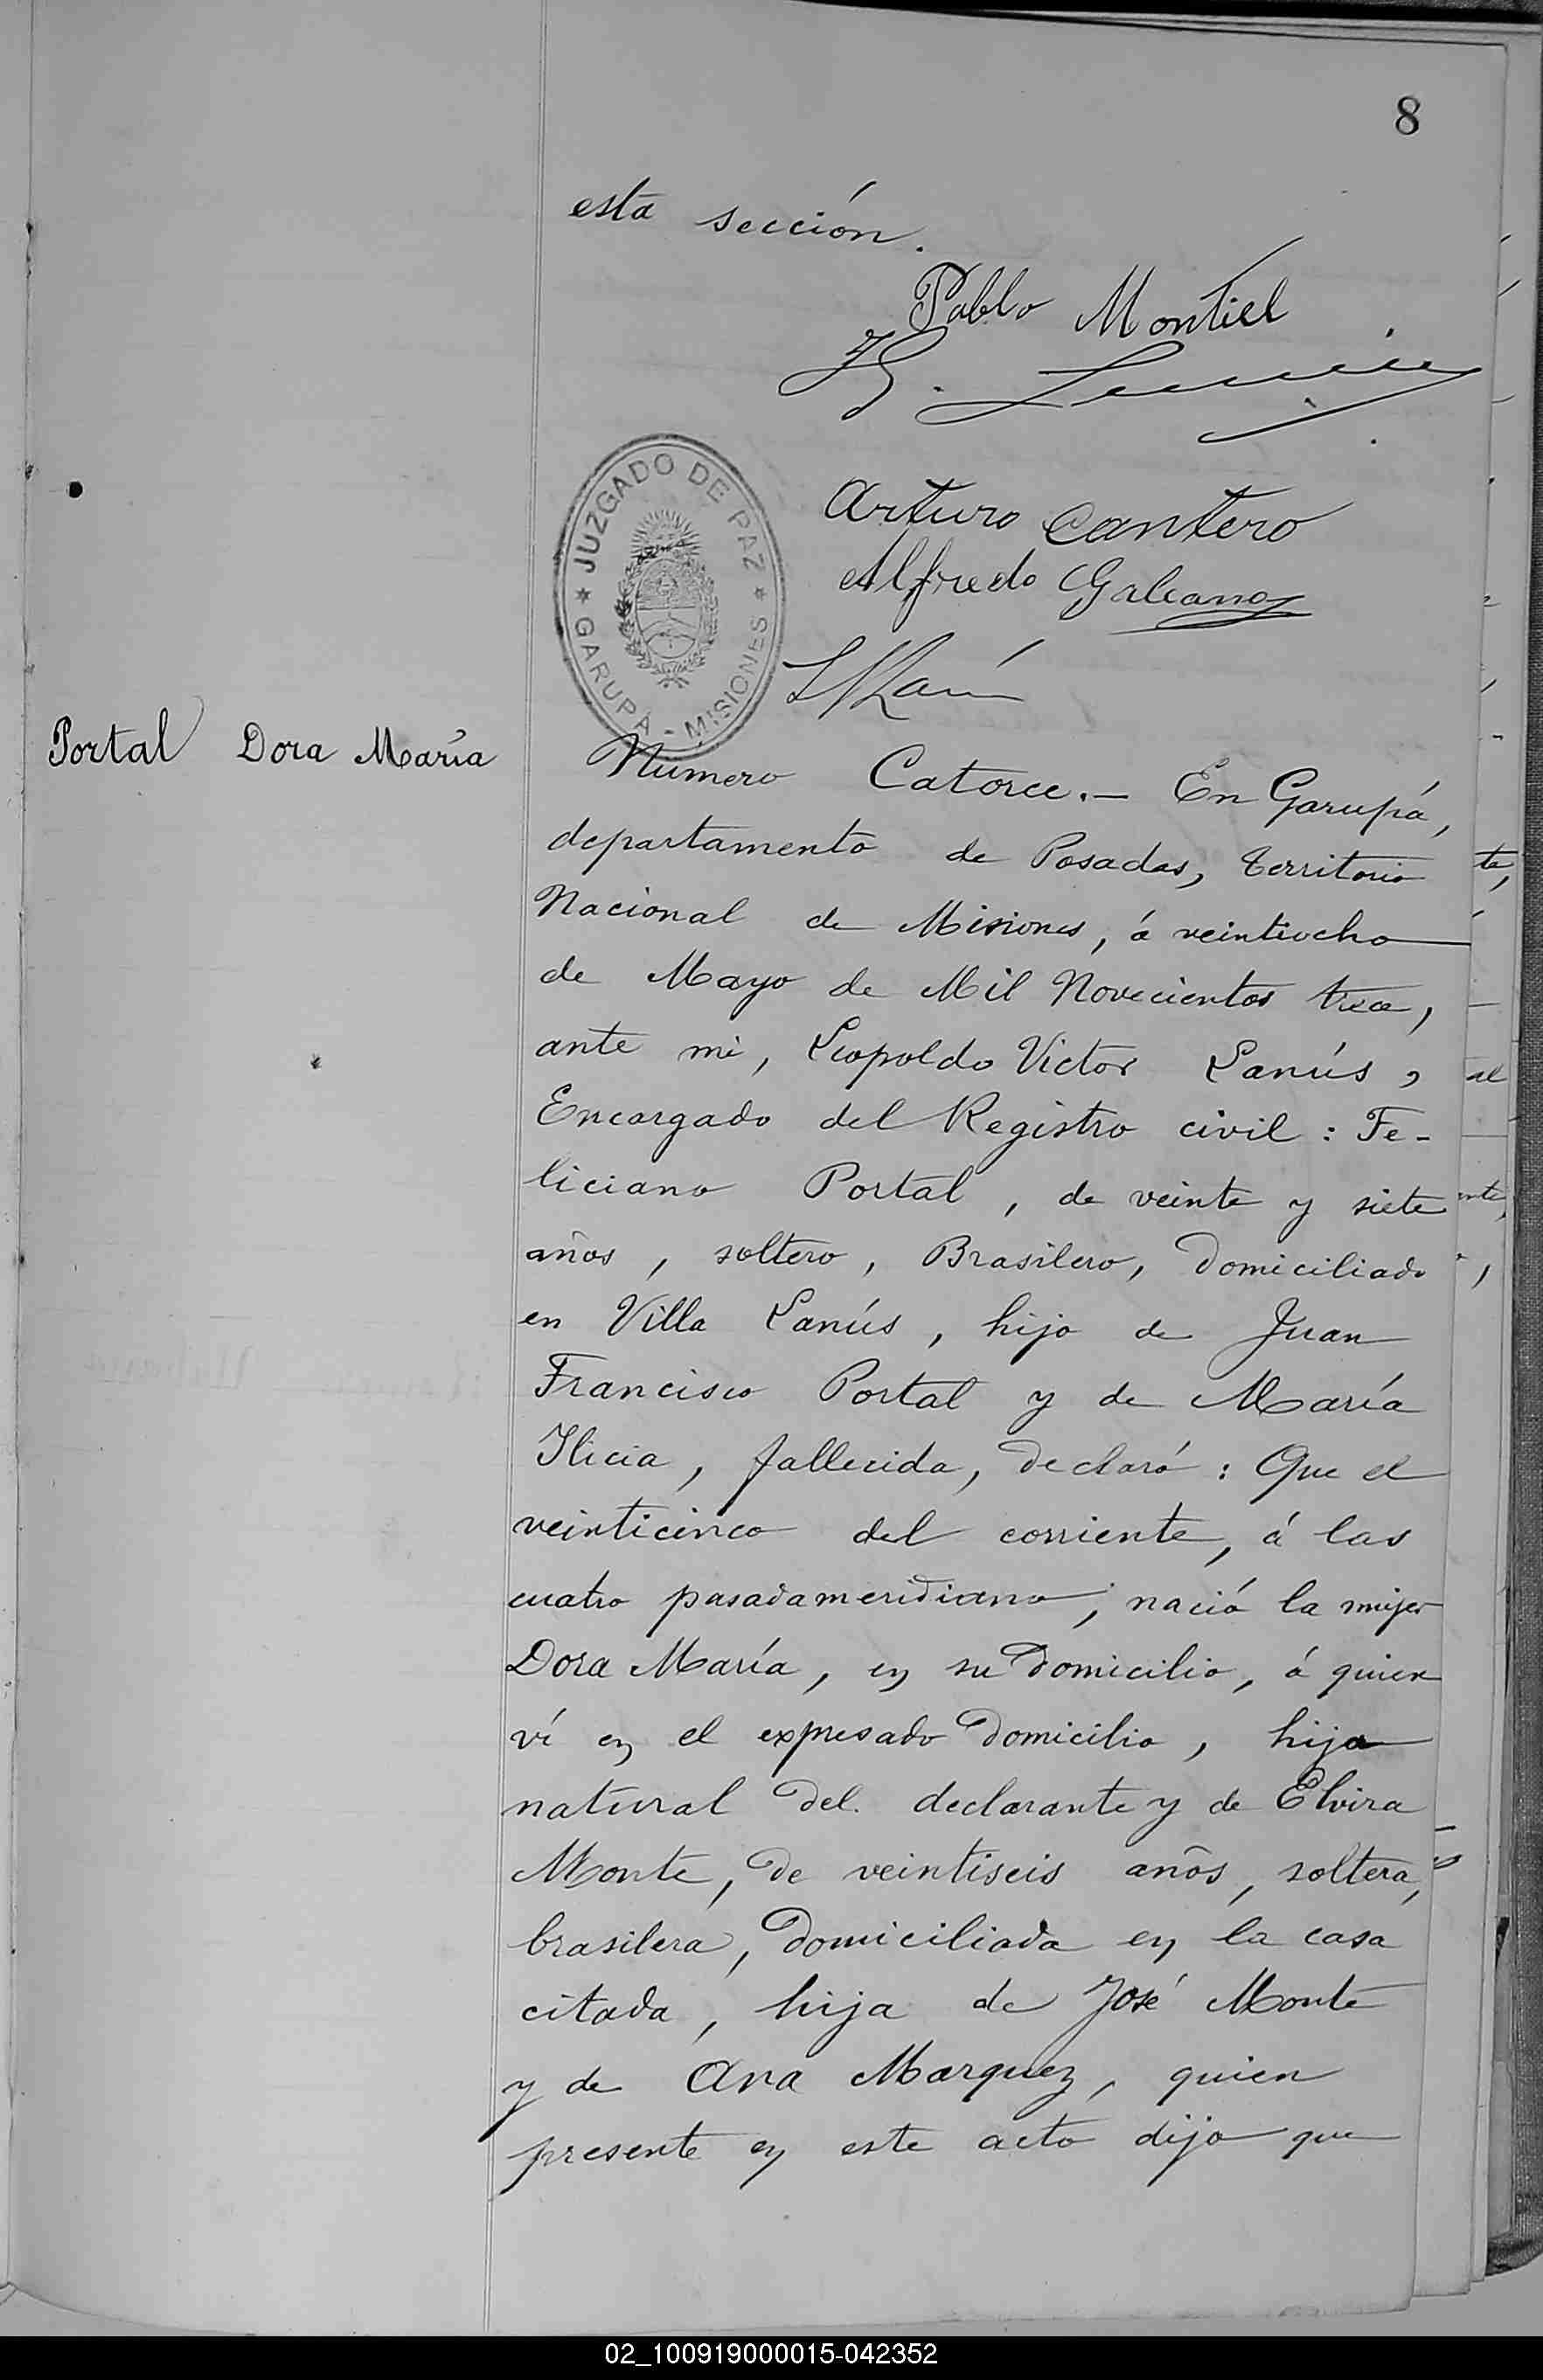 8
esta sección.
Pablo Montiel
Arturo Cantero
Alfredo Galeano
JUZGADO DE PAZ
* GARUPÁ - MISIONES *
Portal Dora María
Número Catorce.— En Garupá,
departamento de Posadas, territorio
Nacional de Misiones, á veintiocho
de Mayo de Mil Novecientos trece,
ante mi, Leopoldo Victor Lanús,
Encargado del Registro civil: Fe-
liciano Portal, de veinte y siete
años, soltero, Brasilero, domiciliado
en Villa Lanús, hijo de Juan
Francisco Portal y de María
Ilicia, fallecida, declaró: Que el
veinticinco del corriente, á las
cuatro pasadameridiano, nació la mujer
Dora María, en su domicilio, á quien
ví en el expresado domicilio, hija
natural del declarante y de Elvira
Monte, de veintiseis años, soltera,
brasilera, domiciliada en la casa
citada, hija de José Monte
y de Ana Marquez, quien
presente en este acto dijo que
02_100919000015-042352